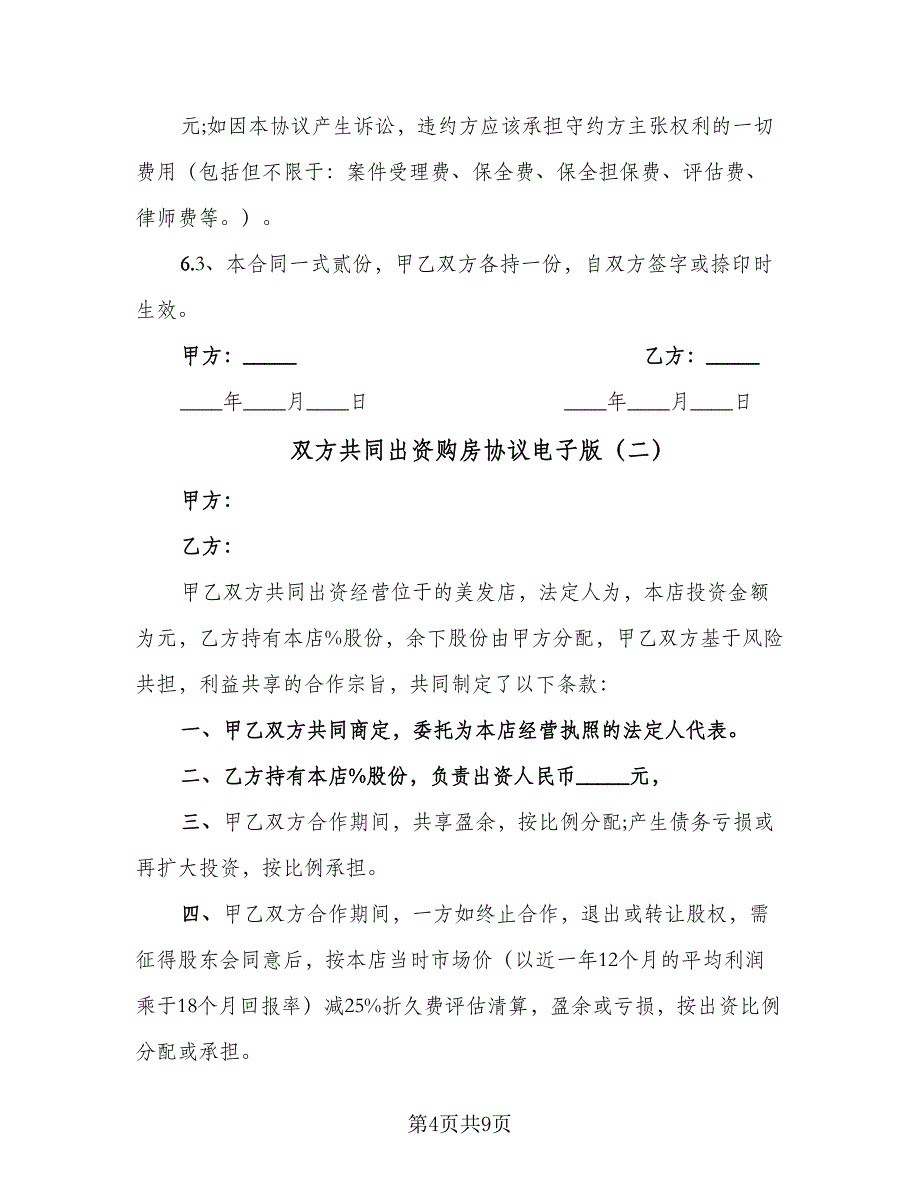 元;如因本协议产生诉讼，违约方应该承担守约方主张权利的一切
费用（包括但不限于：案件受理费、保全费、保全担保费、评估费、
律师费等。）。
6.3、本合同一式贰份，甲乙双方各持一份，自双方签字或捺印时
生效。
甲方：_____ 乙方：_____
____年____月____日 ____年____月____日
双方共同出资购房协议电子版（二）
甲方：
乙方：
甲乙双方共同出资经营位于的美发店，法定人为，本店投资金额
为元，乙方持有本店%股份，余下股份由甲方分配，甲乙双方基于风险
共担，利益共享的合作宗旨，共同制定了以下条款：
一、甲乙双方共同商定，委托为本店经营执照的法定人代表。
二、乙方持有本店%股份，负责出资人民币_____元，
三、甲乙双方合作期间，共享盈余，按比例分配;产生债务亏损或
再扩大投资，按比例承担。
四、甲乙双方合作期间，一方如终止合作，退出或转让股权，需
征得股东会同意后，按本店当时市场价（以近一年12个月的平均利润
乘于18个月回报率）减25%折久费评估清算，盈余或亏损，按出资比例
分配或承担。
第4页共9页